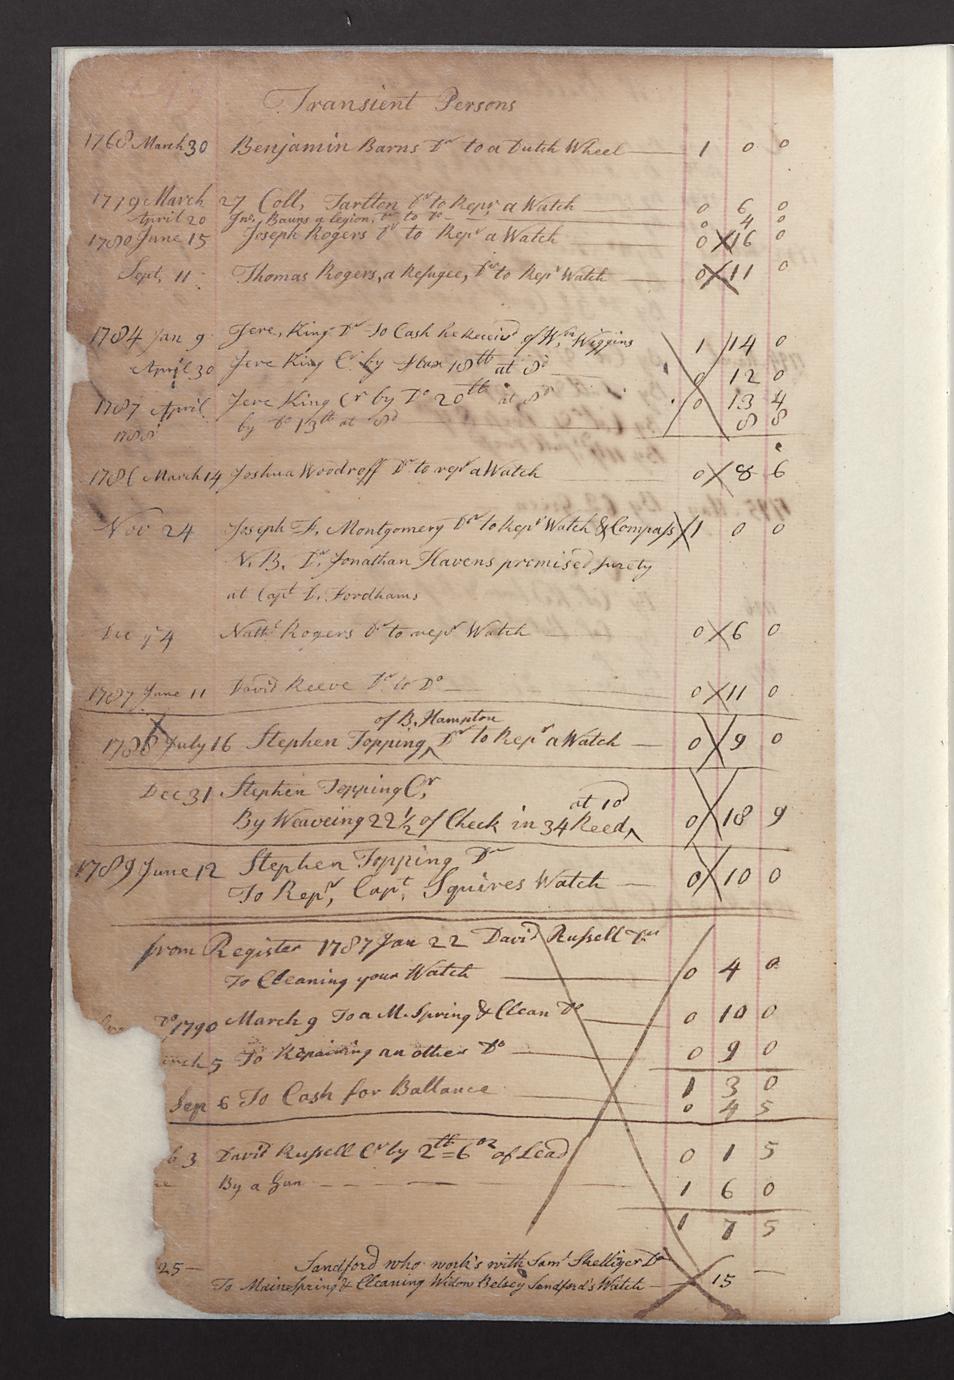 Transient Persons
1768 March 30 Benjamin Barns Dr to a Dutch Wheel — 1 0 0
1779 March 27 Coll, Tarlton Dr to Repr, a Watch — 0 6 0
April 20 Jno, Bauns q legion, Dr to Do — 0 4 0
1780 June 15 Joseph Rogers Dr to Repr a Watch — 0 16 0
Sept, 11 Thomas Rogers, a Refugee, Dr to Repr Watch — 0 11 0
1784 Jan 9 Jere, King Dr To Cash he Receivd of Wm Wiggins 1 14 0
April 30 Jere King Cr by Flax 18th at 8d — 0 12 0
1787 April Jere King Cr by Do 20th at 8d 0 13 4
1788 by Do 13th at 8d — 8 8
1786 March 14 Joshua Woodroff Dr to repr a Watch 0 8 6
Nov 24 Joseph F. Montgomery Dr to Repr Watch & Compass 1 0 0
N. B. Dr, Jonathan Havens promised surety
at Capt D. Fordhams
Dec ye 4 Nathl Rogers Dr to repr Watch — 0 6 0
1787 June 11 David Reeve Dr to Do — 0 11 0
of B, Hampton
1788 July 16 Stephen Topping, Dr to Repr a Watch — 0 9 0
Dec 31 Stephen Topping Cr,
at 10d
By Weaveing 22 1/2 of Check in 34 Reed 0 18 9
1789 June 12 Stephen Topping Dr
To Repr, Capt, Squires Watch — 0 10 0
from Register 1787 Jan 22 David Russell Dr
To Cleaning your Watch — 0 4 0
Do 1790 March 9 To a M. Spring & Clean Do — 0 10 0
rch 5 To Repairing an other Do — 0 9 0
1 3 0
Sep 6 To Cash for Ballance 0 4 5
b 3 David Russell Cr by 2th = 6oz of Lead 0 1 5
By a Gun — 1 6 0
1 7 5
25 — Sandford who work's with Saml Skelliger Dr
To Mainspring & Cleaning Widow Betsey Sandford's Watch — 15 —